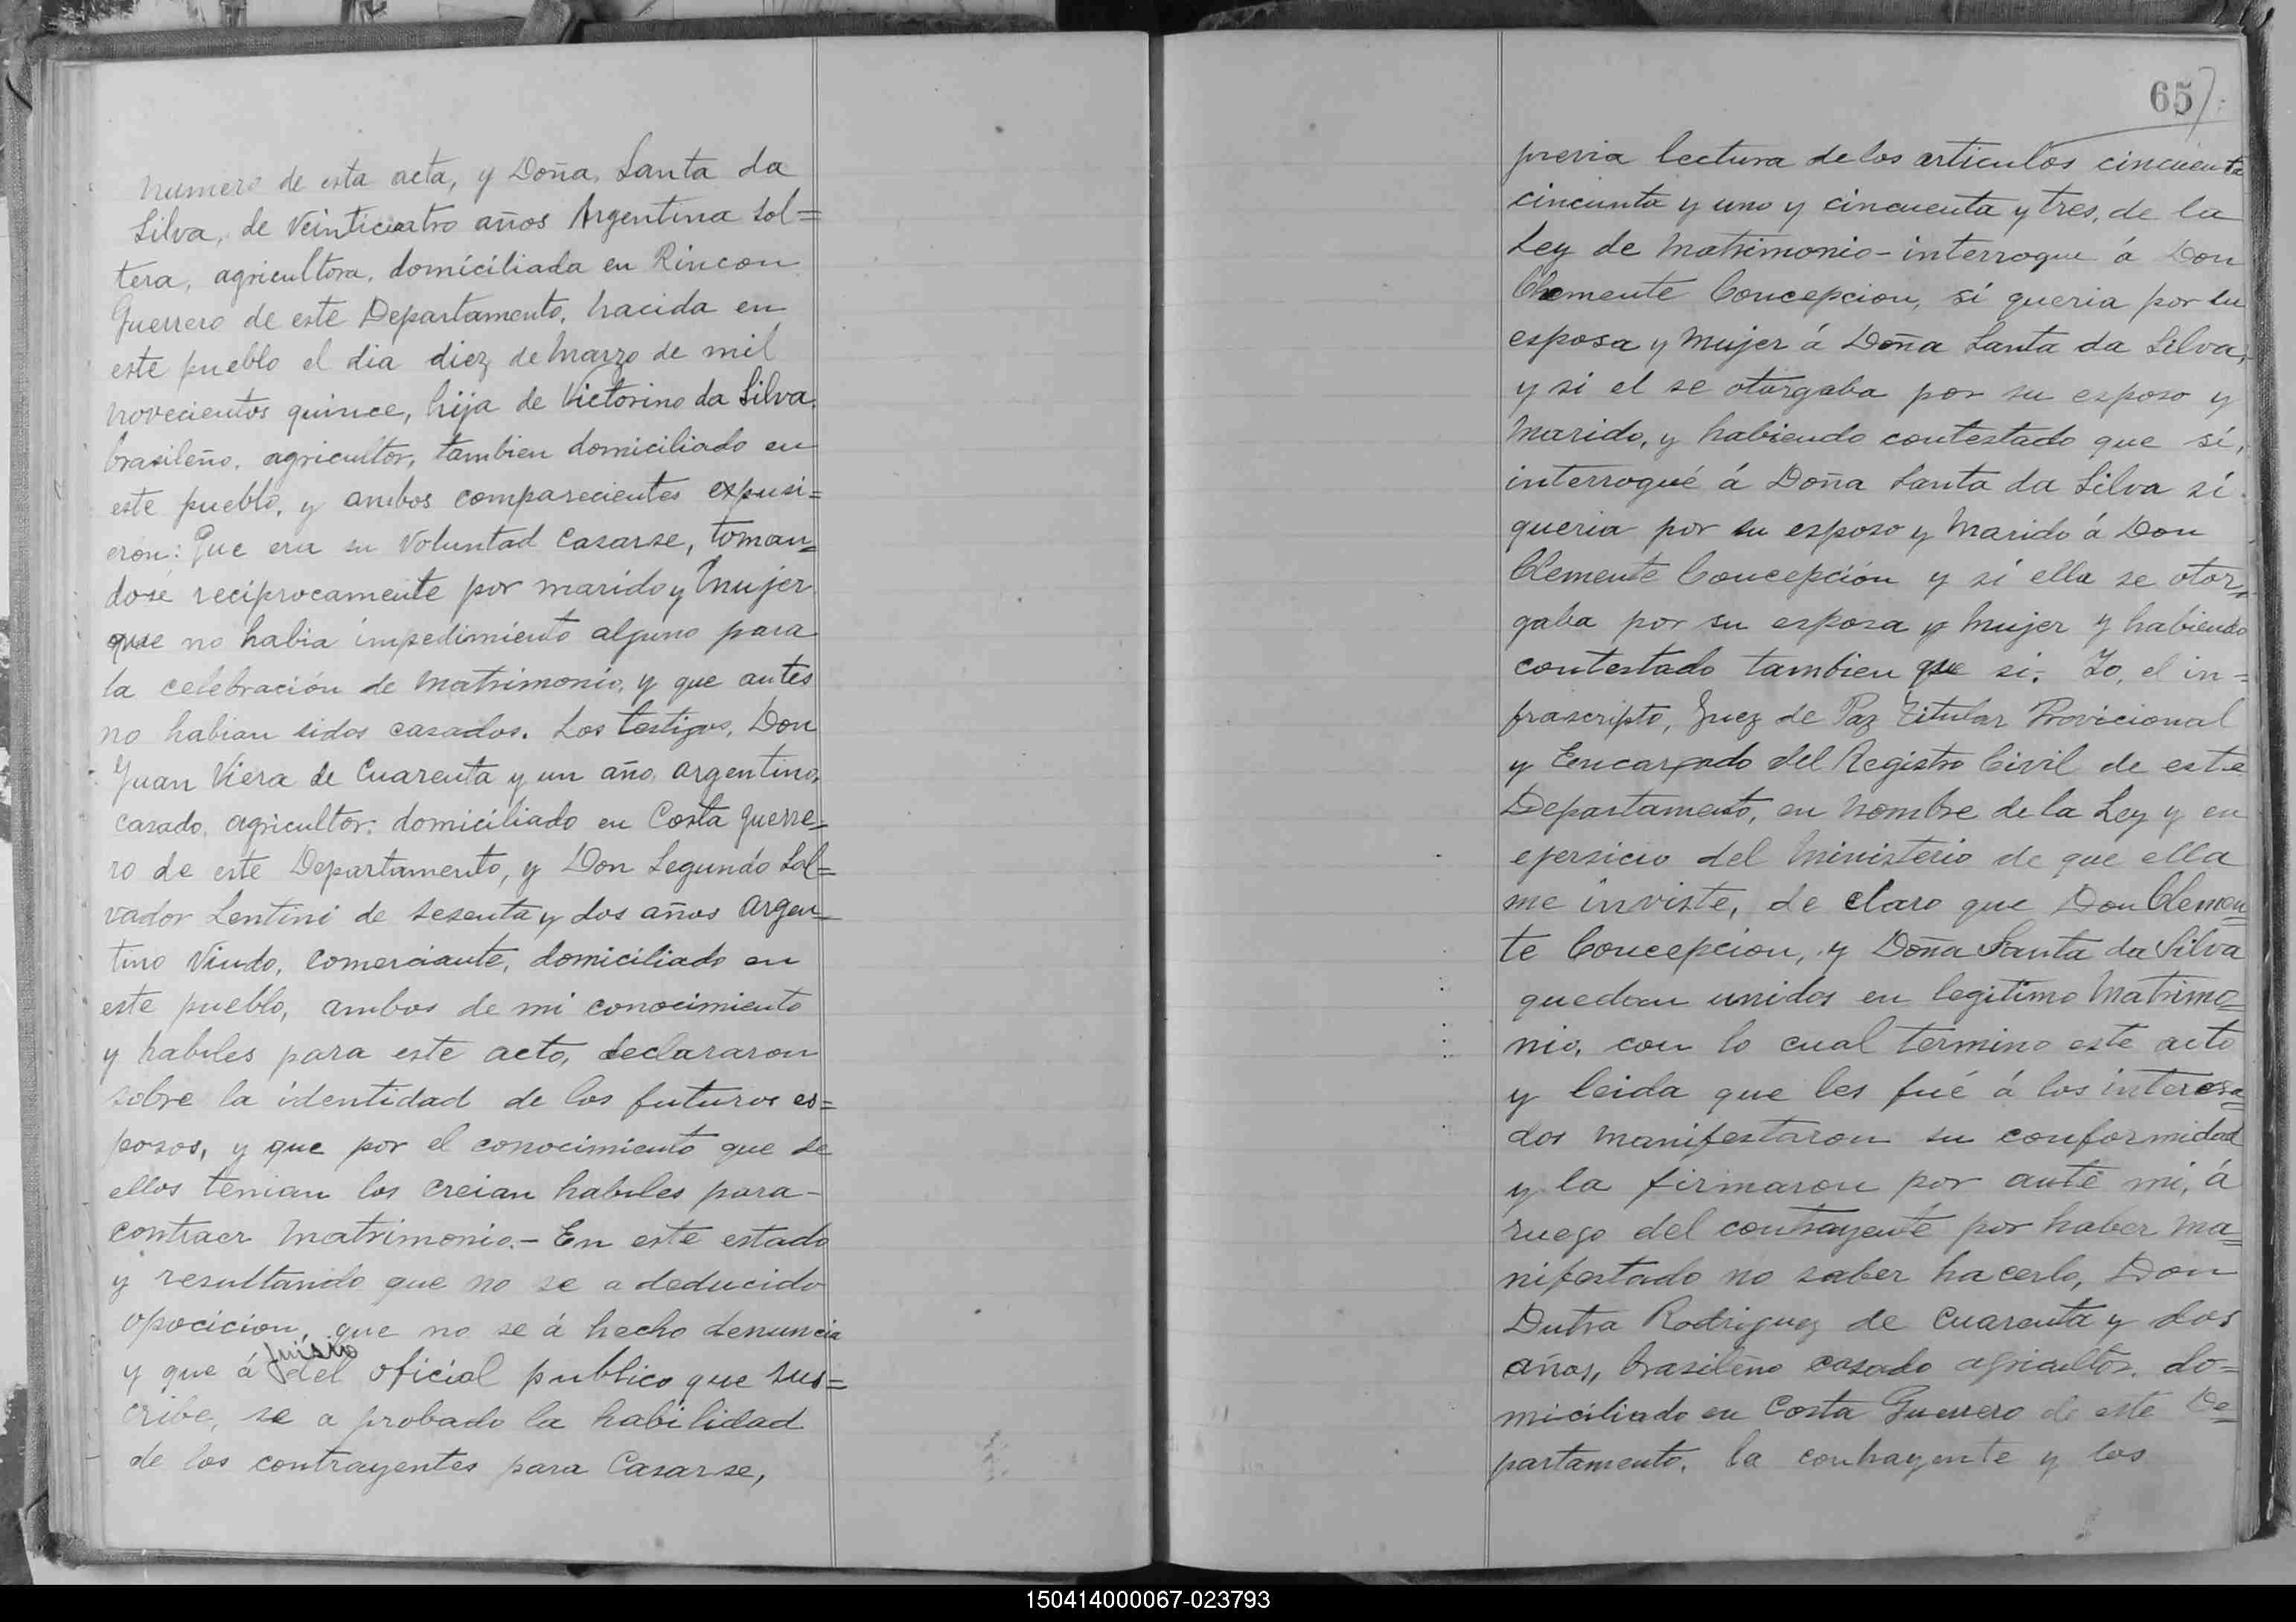 numero de esta acta, y Doña, Santa da
Silva, de Veinticuatro años Argentina Sol=
tera, agricultora, domiciliada en Rincon
Guerrero de este Departamento, nacida en
este pueblo el dia diez de Marzo de mil
novecientos quince, hija de Victorino da Silva,
brasileño, agricultor, tambien domiciliado en
este pueblo, y ambos comparecientes expusi=
eron: Que era su voluntad casarse, toman=
dose reciprocamente por marido y Mujer
que no habia impedimiento alguno para
la celebración de Matrimonio, y que antes
no habian sidos casados. Los testigos, Don
Juan Viera de Cuarenta y un año, argentino,
casado, agricultor, domiciliado en Costa Guerre=
ro de este Departamento, y Don Segundo Sal=
vador Lentini de sesenta y dos años argen=
tino Viudo, comerciante, domiciliado en
este pueblo, ambos de mi conocimiento
y habiles para este acto, declararon
sobre la identidad de los futuros es=
posos, y que por el conocimiento que de
ellos tenian los creian habiles para-
contraer Matrimonio.- En este estado
y resultando que no se a deducido
opocicion, que no se á hecho denuncia
juisio
y que á del oficial publico que sus=
cribe, se a probado la habilidad
de los contrayentes para Casarse,
65
previa lectura de los articulos cincuenta
cincunta y uno y cincuenta y tres, de la
Ley de Matrimonio-interrogue á Don
Clemente Concepcion, si queria por su
esposa y Mujer á Doña Santa da Silva,
y si el se otorgaba por su esposo y
Marido, y habiendo contestado que si,
interrogué á Doña Santa da Silva si
queria por su esposo y Marido á Don
Clemente Concepción y si ella se otor=
gaba por su esposa y Mujer y habiendo
contestado tambien que si. Yo, el in=
frascripto, Juez de Paz Titular Provicional
y Encargado del Registro Civil de este
Departamento, en nombre de la Ley y en
ejersicio del Ministerio de que ella
me inviste, de claro que Don Clemen=
te Concepcion, y Doña Santa da Silva
quedan unidos en legitimo Matrimo=
nio, con lo cual termino este acto
y leida que les fué á los interesa=
dos manifestaron su conformidad
y la firmaron por ante mi, á
ruego del contrayente por haber ma=
nifestado no saber hacerlo, Don
Dutra Rodriguez de Cuarenta y dos
años, brasileño casado agricultor, do=
miciliado en Costa Guerrero de este De=
partamento, la contrayente y los
150414000067-023793